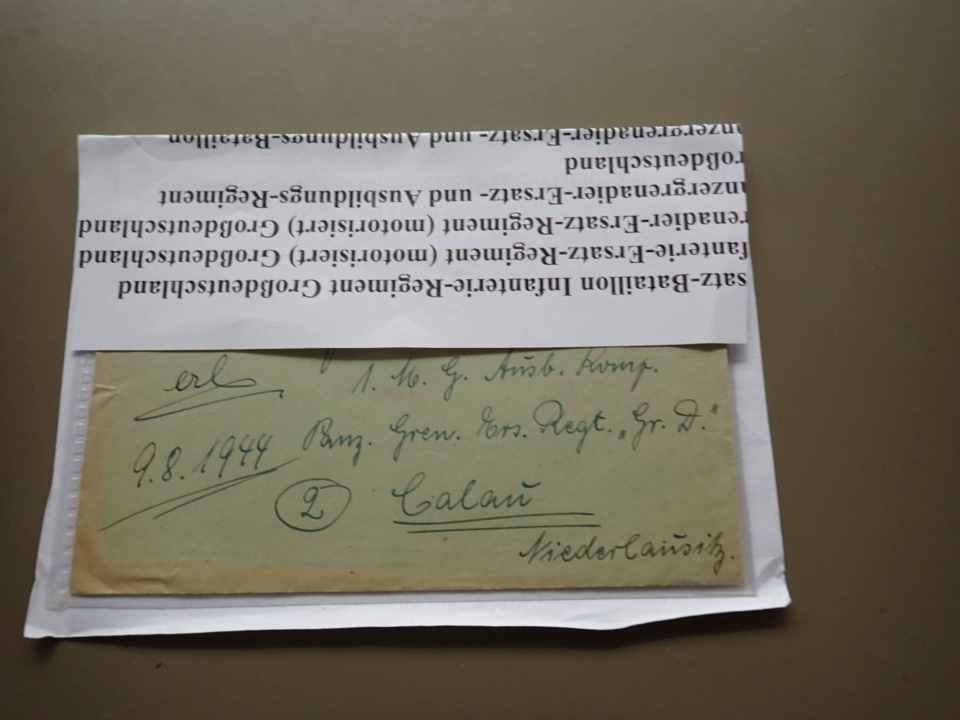 satz-Bataillon Infanterie-Regiment Großdeutschland
fanterie-Ersatz-Regiment (motorisiert) Großdeutschland
renadier-Ersatz-Regiment (motorisiert) Großdeutschland
nzergrenadier-Ersatz- und Ausbildungs-Regiment
roßdeutschland
nzergrenadier-Ersatz- und Ausbildungs-Bataillon
erl 1. M. G. Ausb. Komp.
9.8.1944 Panz. Gren. Ers. Regt. „Gr. D."
2 Calau
Niederlausitz.